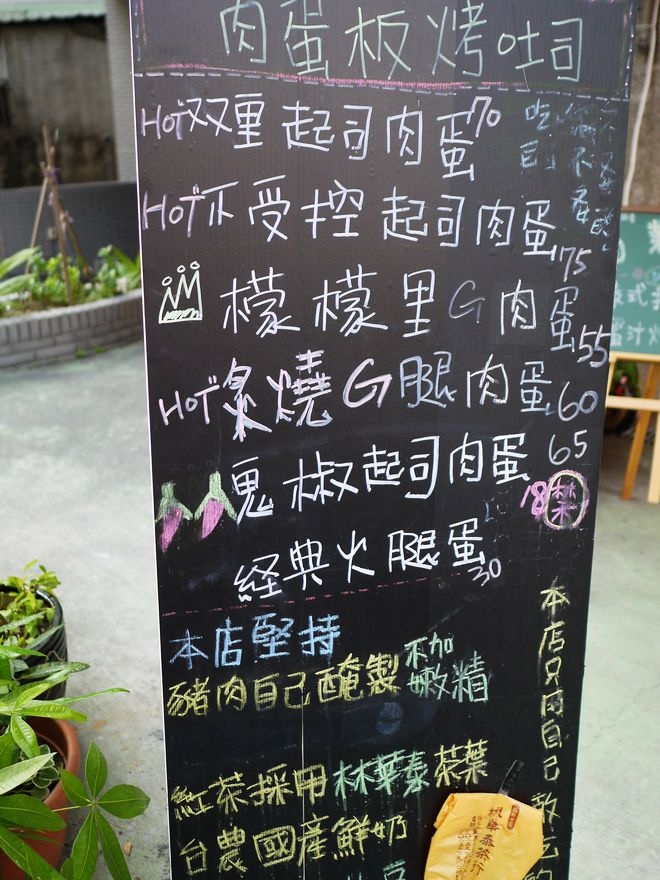 肉蛋板烤吐司
HOT 双里起司肉蛋 70
HOT 不受控起司肉蛋 75
檬檬里G肉蛋 55
HOT 炙燒G腿肉蛋 60
鬼椒起司肉蛋 65
18禁
經典火腿蛋 30
本店堅持
豬肉自己醃製 不加嫩精
紅茶採用林華泰茶葉
台農國產鮮奶
本店只用自己